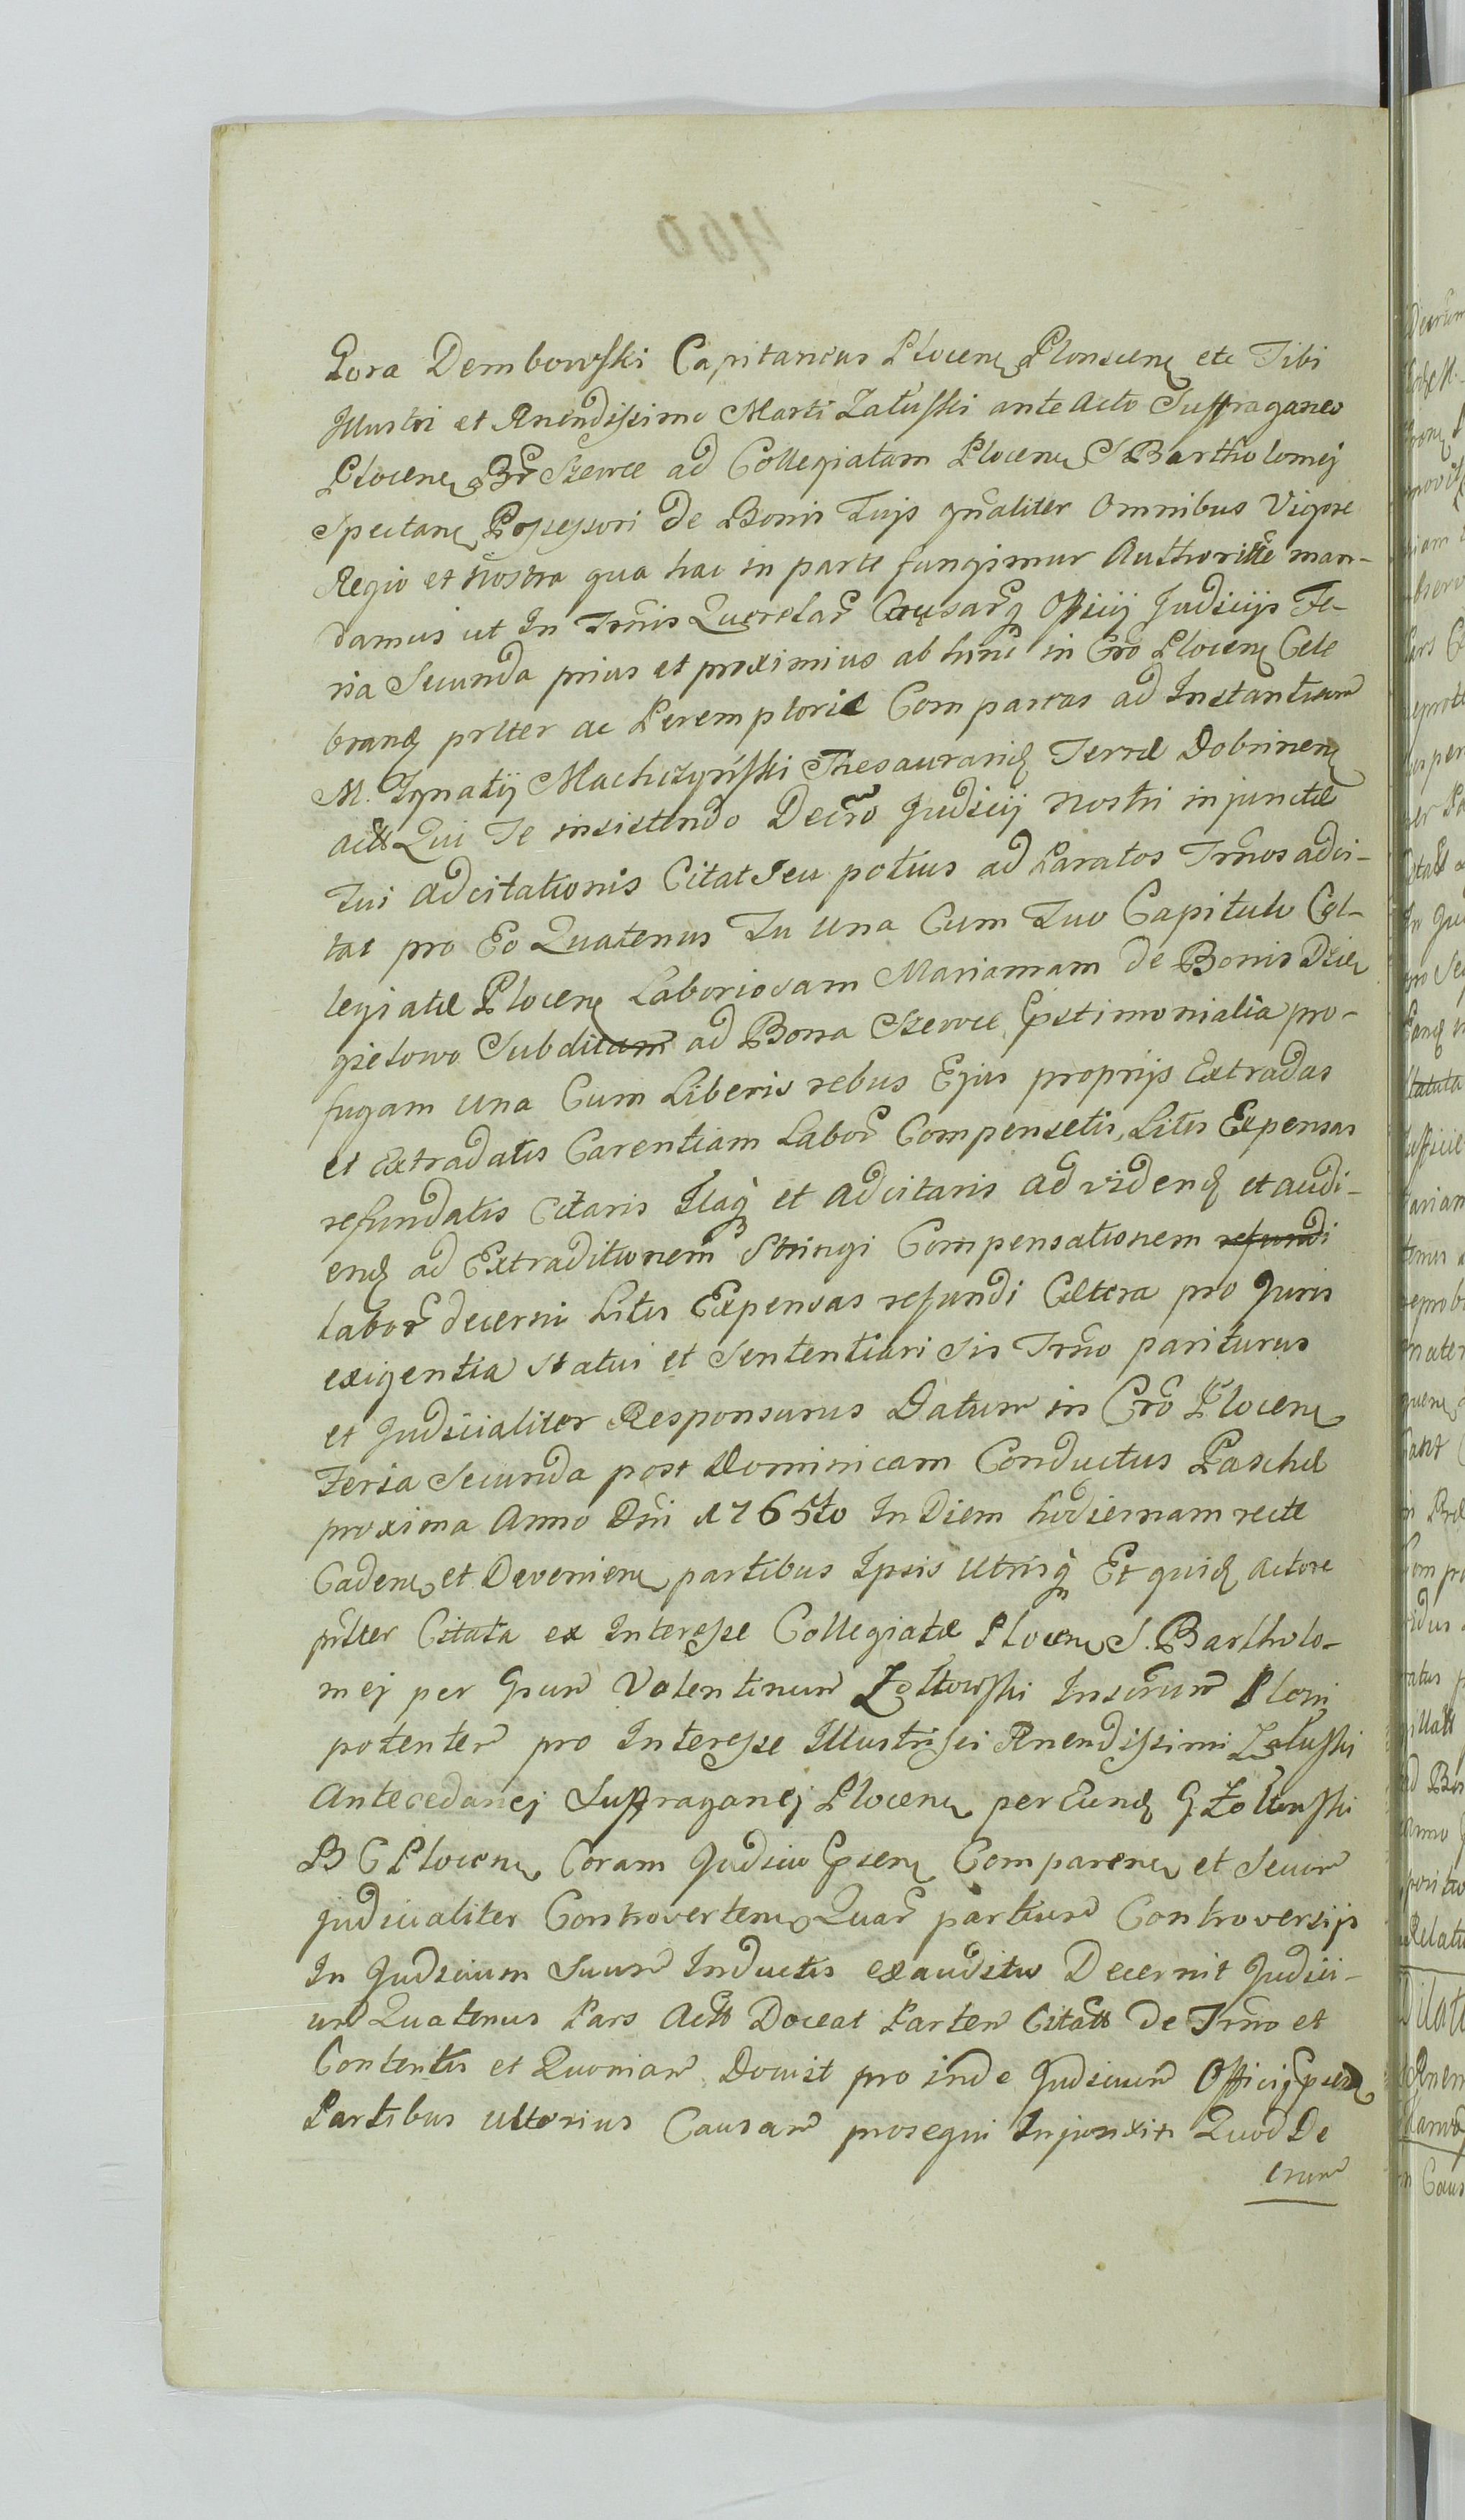 Gora Dembowski Capitaneus Plocen Plonscen etc Tibi
Illustri et Rnendissimo Marti Załuski ante acto Suffraganeo
Plocen Br Szewce ad Collegiatam Plocen S Bartholomej
Spectan Possessori de Bonis Tuis gnaliter Omnibus Vigore
Regio et Nostra qua hac in parte fungimur Authoritte man-
damus ut In Trnis Querelar Causarq Officij Judicijs Fe-
ria Secunda prius et proximius ab hinc in Cro Plocen Cele
brand prlter ac Peremptorie Compareas ad Instantiam
M. Ignatij Machczyński Thesaurarid Terræ Dobrinen
actt Qui Te insistendo Decro Judicij Nostri injunctæ
Tui adcitationis Citat Seu potius ad Paratos Trnos adci-
tat pro Eo Quatenus Tu una Cum Tuo Capitulo Col-
legiatæ Plocen Laboriosam Mariannam de Bonis Dzie
gielowo Subditam ad Bona Szewce Epistimonialia pro-
fugam una Cum Liberis rebus Ejus proprijs Extradas
et Extradatis Carentiam Labor Compensetis, Litis Expensas
refundatis Citaris Itaq et adcitaris ad videnđ et audi-
enđ ad Extraditionem Stringi Compensationem refundi
labor decerni Litis Expensas refundi Cætera pro Juris
exigentia Statui et Sententiari Sis Trno pariturus
et Judicialiter Responsurus Datum in Cro Plocen
Feria Secunda post Dominicam Conductus Paschæ
proxima Anno Dni 1765to In Diem hodiernam recte
Caden et Devenien partibus Ipsis Utrisq Et quid actore
prlter Citata ex Interesse Collegiatæ Plocen S. Bartholo-
mej per Gsum Valentinum Żołtowski Inscrum Pleni
potentem pro Interesse Illustrissi Rnendissimi Załuski
Antecedanej Suffraganej Plocen per Eund G. Żołtowski
B C Plocen Coram Judicio Gsien Comparen et Secum
judicialiter Controverten Quar partium Controversijs
In Judicium Suum Inductis exauditis Decernit Judici-
um Quatenus Pars Actt Doceat Partem Citatt De Trno et
Contentis et Quoniam Docuit pro inde Judicium Officij
Partibus ulterius Causam prosequi Injunxit Quod De
crum